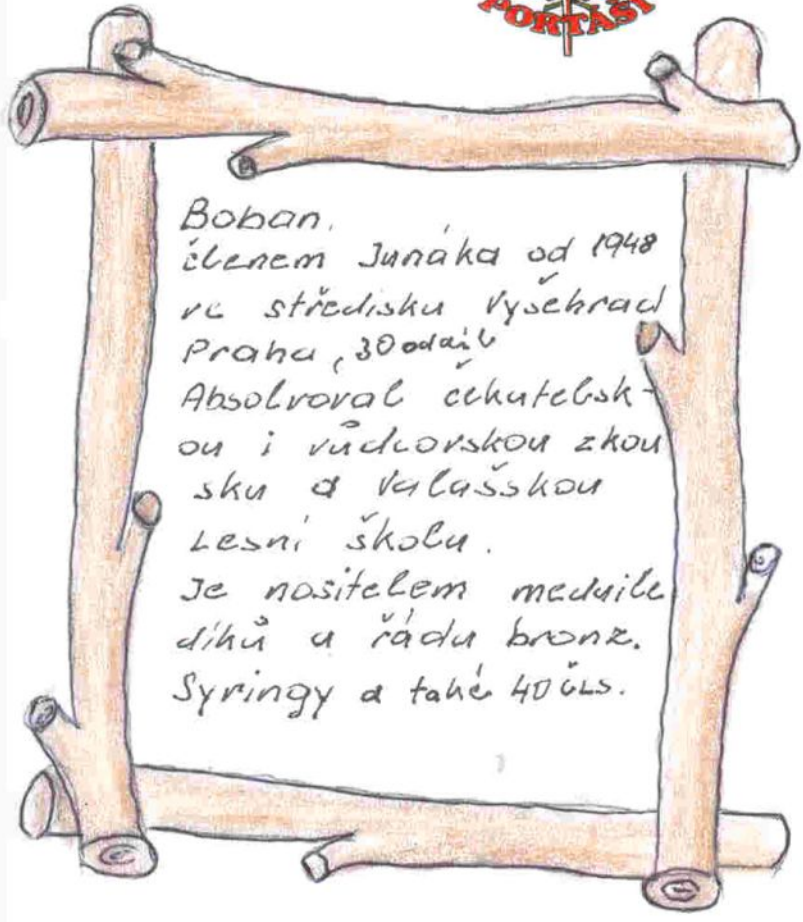 PORTÁŠI
Boban.
členem Junáka od 1948
ve středisku Vyšehrad
Praha, 30 oddíl
Absolvoval čekatelsk-
ou i vůdcovskou zkou
šku a Valašskou
Lesní školu.
Je nositelem medaile
díků a řádu bronz.
Syringy a také 40 ČLS.